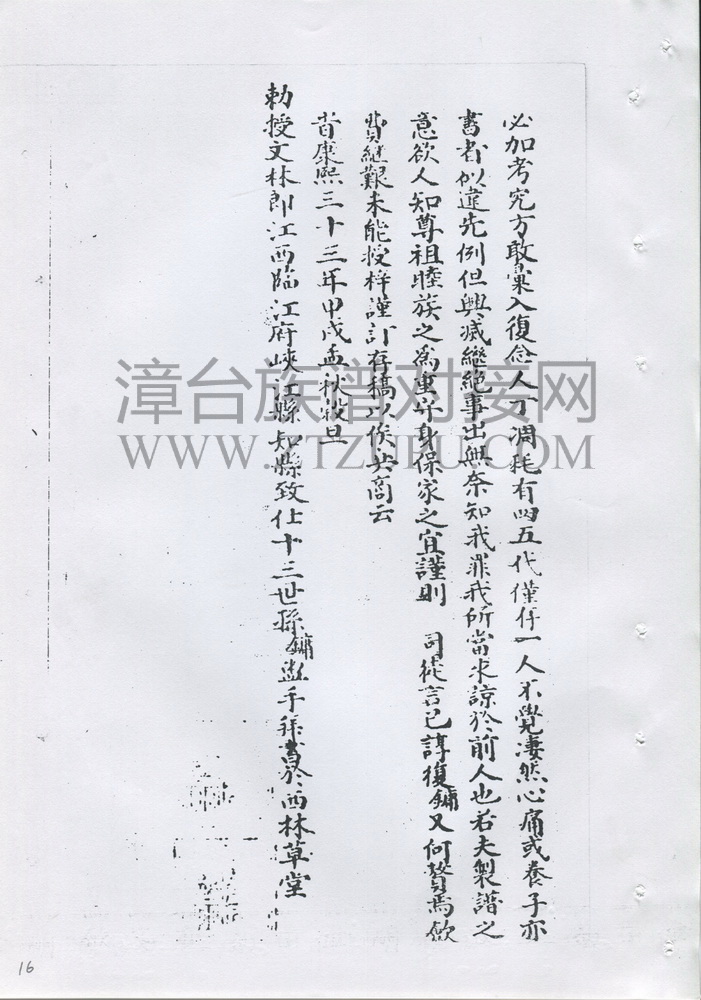 必加考究方敢彙入復念人丁凋耗有四五代僅存一人不覺淒然心痛或養子亦
書者似違先例但興滅繼絕事出無奈知我罪我所當求諒於前人也若夫製譜之
意欲人知尊祖睦族之為重守身保家之宜謹則 司徒言已諄復鏞又何贅焉欲
費繼艱未能授梓謹訂存稿以俟共商云
旹康熙三十三年甲戌孟秋穀旦
勅授文林郎江西臨江府峽江縣知縣致仕十三世孫鏞盥手拜書於西林草堂
漳台族谱对接网
WWW.ZTZUPU.COM
16